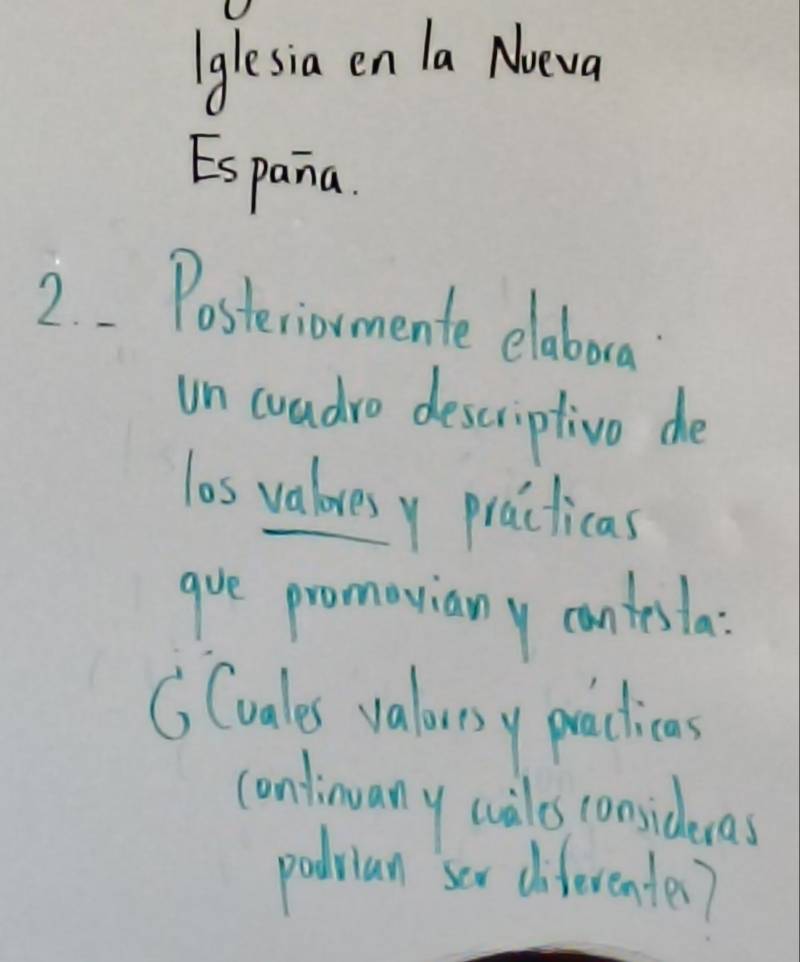 Iglesia en la Nueva
España.
2.- Posteriormente elabora
un cuadro descriptivo de
los valores y prácticas
que promovian y contesta:
¿Cuales valores y prácticas
continuan y cuáles consideras
podrian ser diferentes?